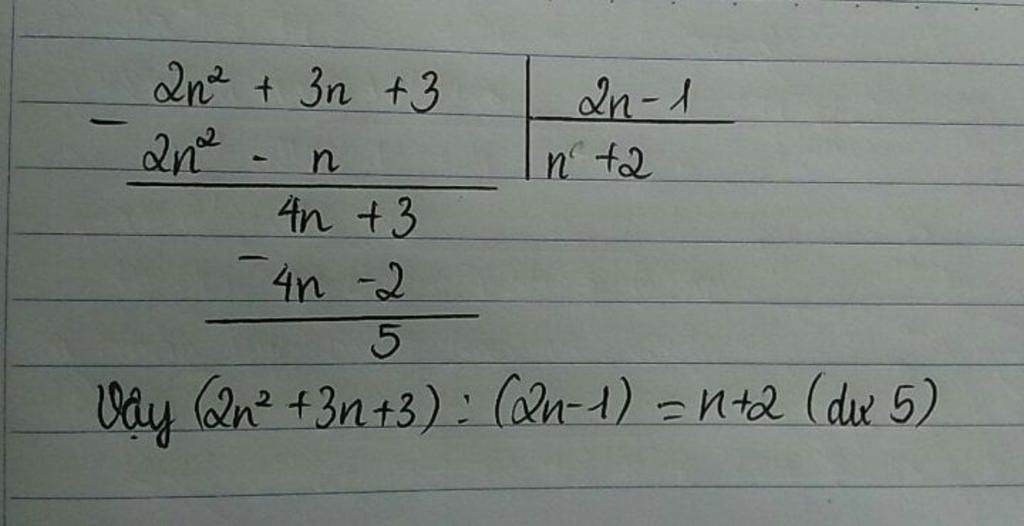 2n² + 3n + 3 | 2n - 1
- 2n² - n | n + 2
4n + 3
- 4n - 2
5
Vậy (2n² + 3n + 3) : (2n - 1) = n + 2 (dư 5)